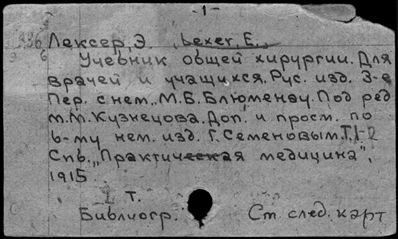 -1-
336 Лексер, Э. Lexer, E.
Учебник общей хирургии. Для
врачей и учащихся. Рус. изд. 3-е
Пер. с нем. М.Б. Блюменау. Под ред
М.М. Кузнецова. Доп. и просм. по
6-му нем. изд. Г. Семеновым. Т.1-2
Спб. „Практическая медицина",
1915.
1 т.
Библиогр. См. след. карт